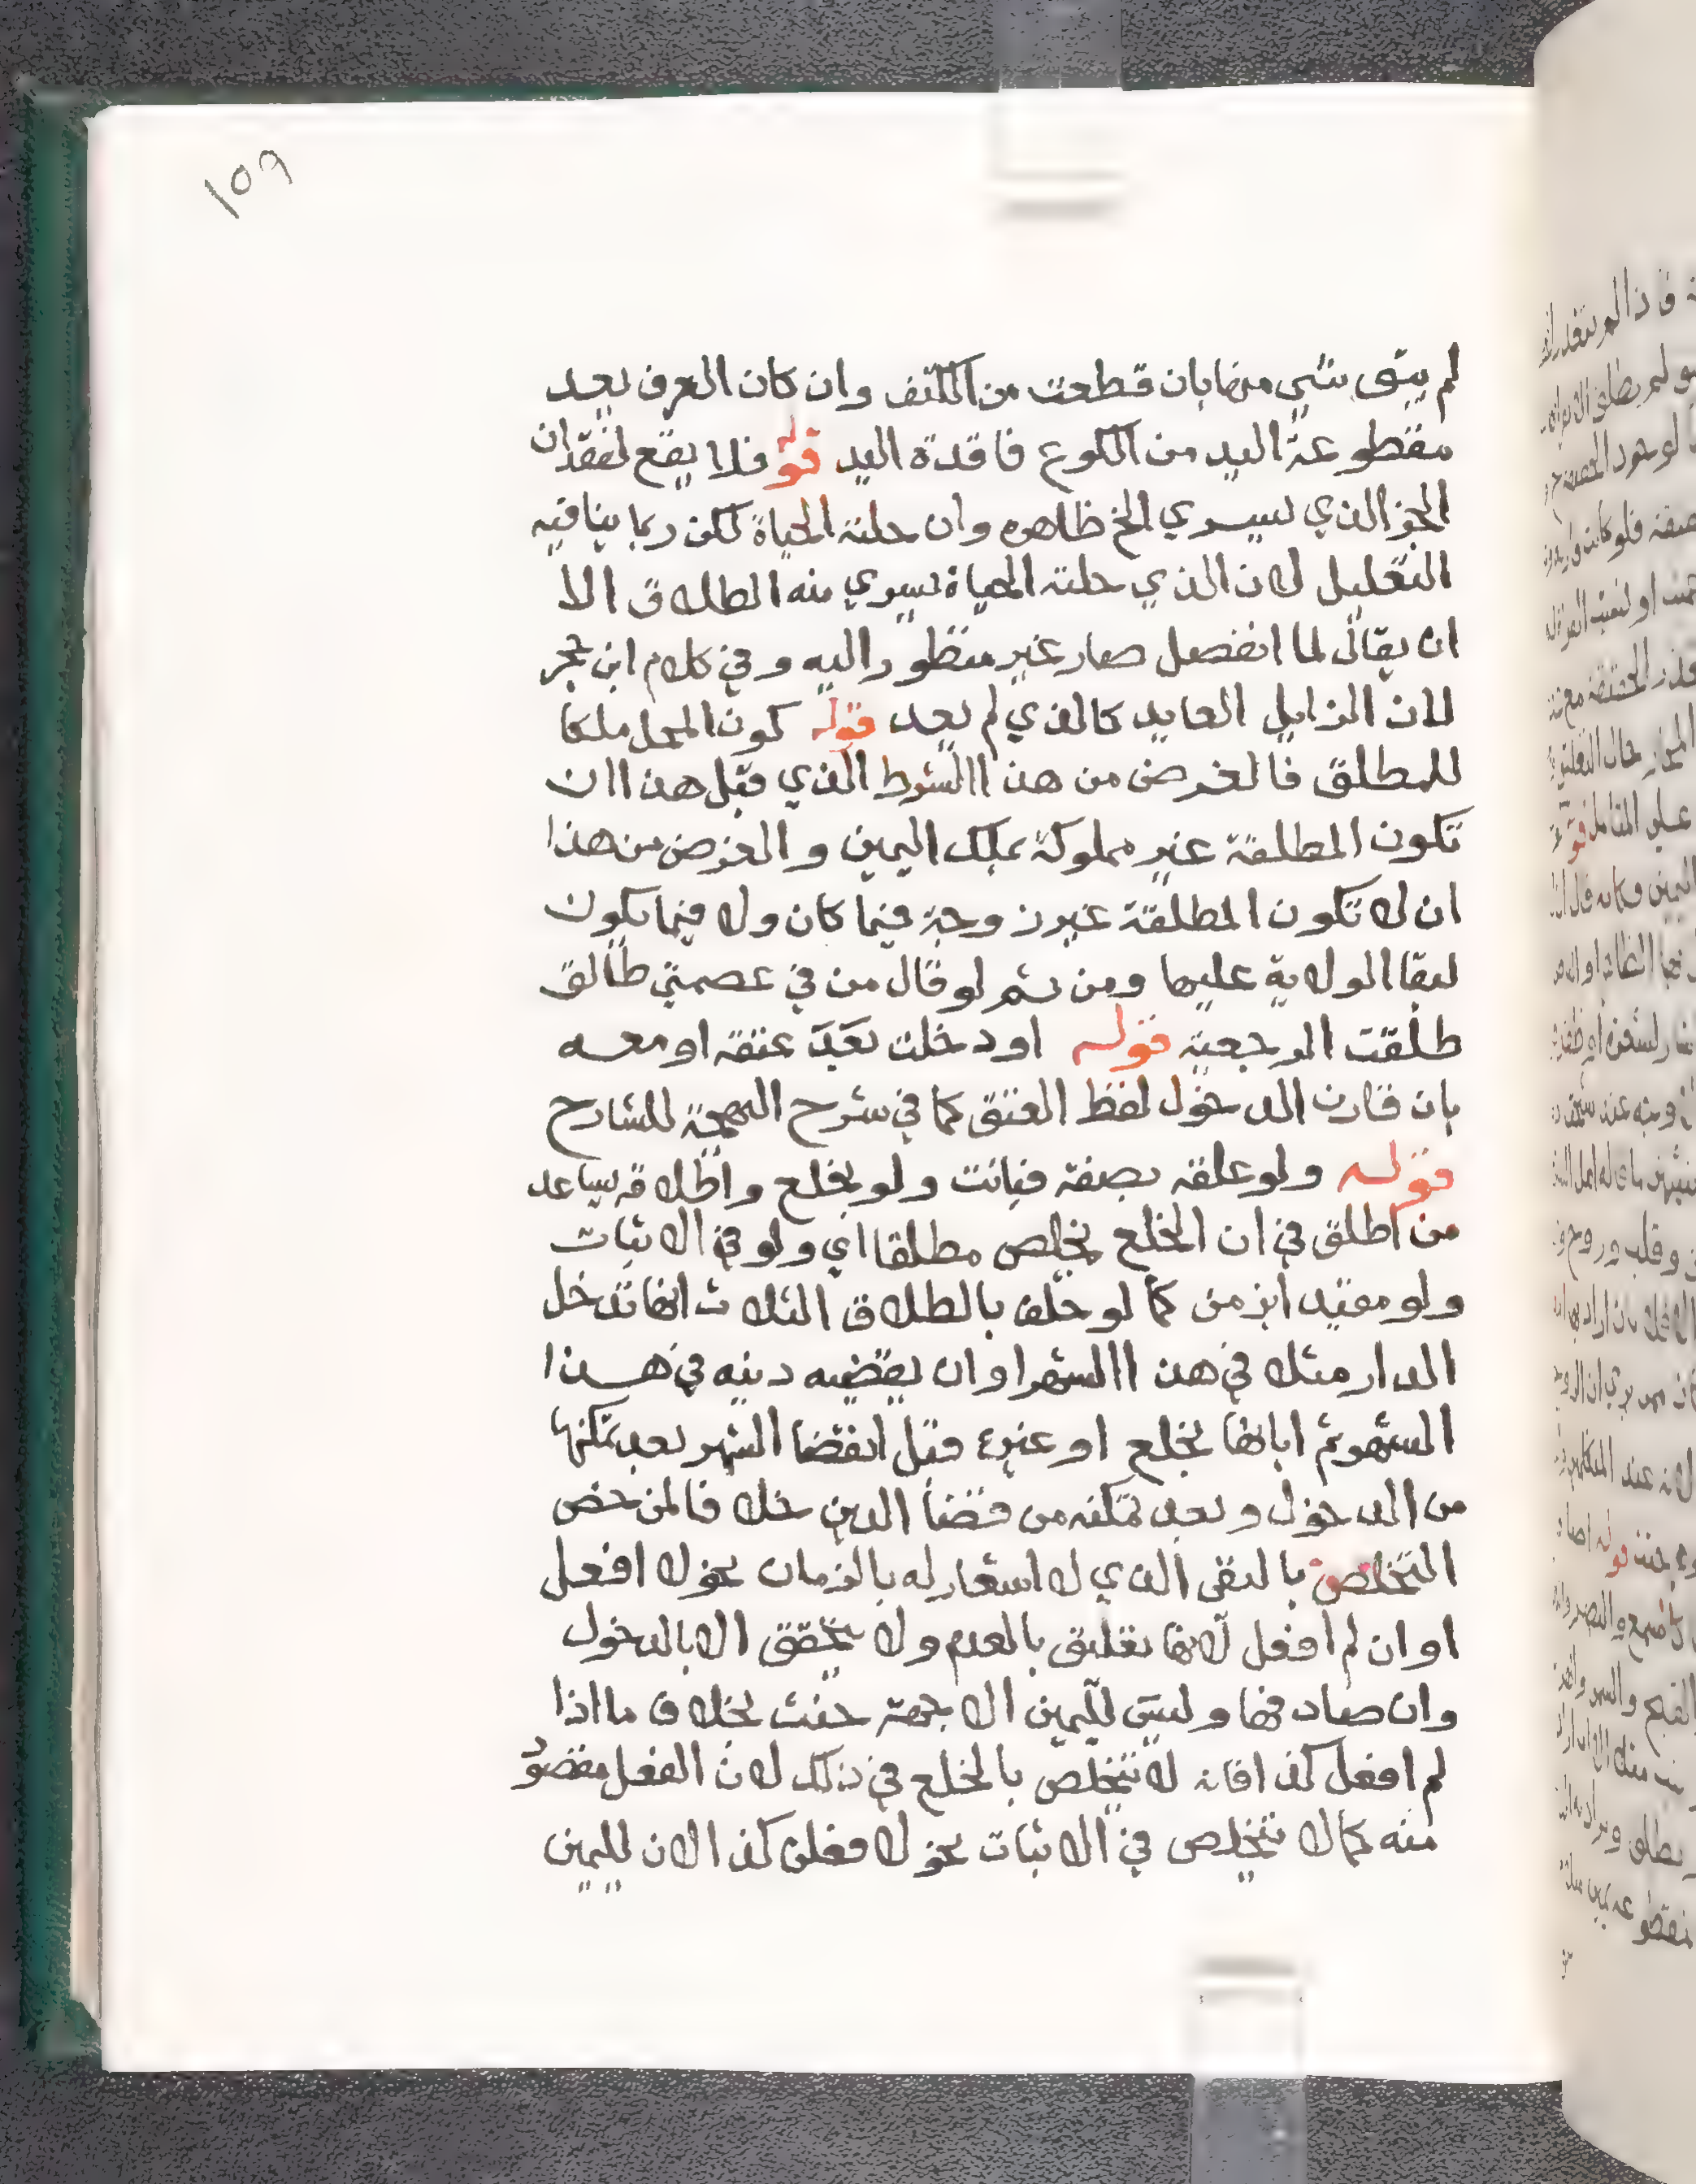 ١٥٩
لم يبق شي منها بان قطعت من الكتف وان كان العرف يعد
مقطوعة اليد من الكوع فاقدة اليد قوله فلا يقع لفقدان
الجز الذي يسري الخ ظاهره وان حلته الحياة لكن ربما ينافيه
التعليل لان الذي حلته الحياة يسري منه الطلاق الا
ان يقال لما انفصل صار غير منظور اليه وفي كلام ابن حجر
لان الزايل العايد كالذي لم يعد قوله كون المحل ملكا
للمطلق فالغرض من هذا الشرط الذي قبل هذا ان
تكون المطلقة غير مملوكة بملك اليمين والغرض من هذا
ان لا تكون المطلقة غير زوجة فيما كان ولا فيما يكون
لبقا الولاية عليها ومن ثم لو قال من في عصمتي طالق
طلقت الرجعية قوله او دخلت بعد عتقه او معه
بان قارن الدخول لفظ العتق كما في شرح البهجة للشارح
قوله ولو علقه بصفة فبانت ولو بخلع واطلاقه يساعد
من اطلق في ان الخلع يخلص مطلقا اي ولو في الاثبات
ولو مقيد ابزمن كما لو حلف بالطلاق الثلاث انها تدخل
الدار مثلا في هذا الشهر او ان يقضيه دينه في هذا
الشهر ثم ابانها بخلع او غيره قبل انقضا الشهر بعد تمكنها
من الدخول وبعد تمكنه من قضا الدين خلافا لمن خص
التخلص بالنفي الذي لا اشعار له بالزمان نحو لا افعل
او ان لم افعل لانها تعليق بالعدم ولا يتحقق الا بالدخول
وان صادفها وليس لليمين الا جهة حنث بخلاف ما اذا
لم افعل كذا فانه لا يتخلص بالخلع في ذلك لان الفعل مقصود
منه كما لا يتخلص في الاثبات نحو لا فعلن كذا لان لليمين